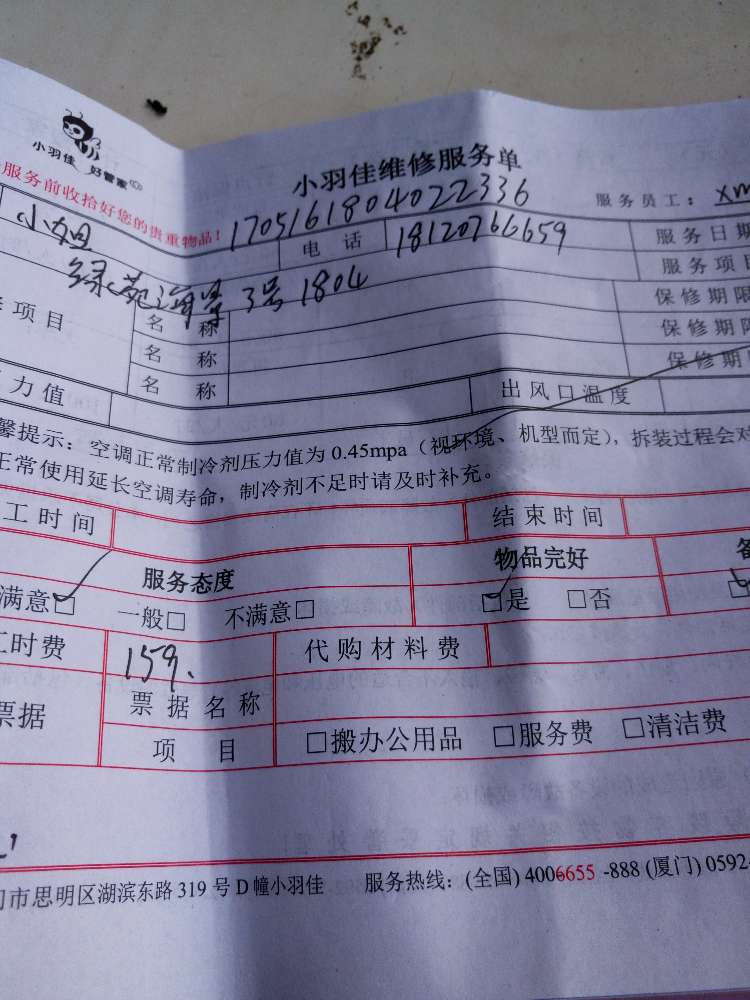 小羽佳 好管家
小羽佳维修服务单
服务前收拾好您的贵重物品！ 1705161804022336 服务员工： xm
小姐 电 话 18120766659 服务日期
绿苑海景3号1804 服务项
项目 名 称 保修期限
名 称 保修期限
名 称 保修期限
力值 出风口温度
馨提示：空调正常制冷剂压力值为 0.45mpa（视环境、机型而定），拆装过程会对
正常使用延长空调寿命，制冷剂不足时请及时补充。
工时间 结束时间
服务态度 物品完好
满意☑ 一般□ 不满意□ ☑是 □否
工时费 159. 代购材料费
票据 票据名称
项 目 □搬办公用品 □服务费 □清洁费
市思明区湖滨东路 319 号 D 幢小羽佳 服务热线：(全国) 4006655 -888 (厦门) 0592-